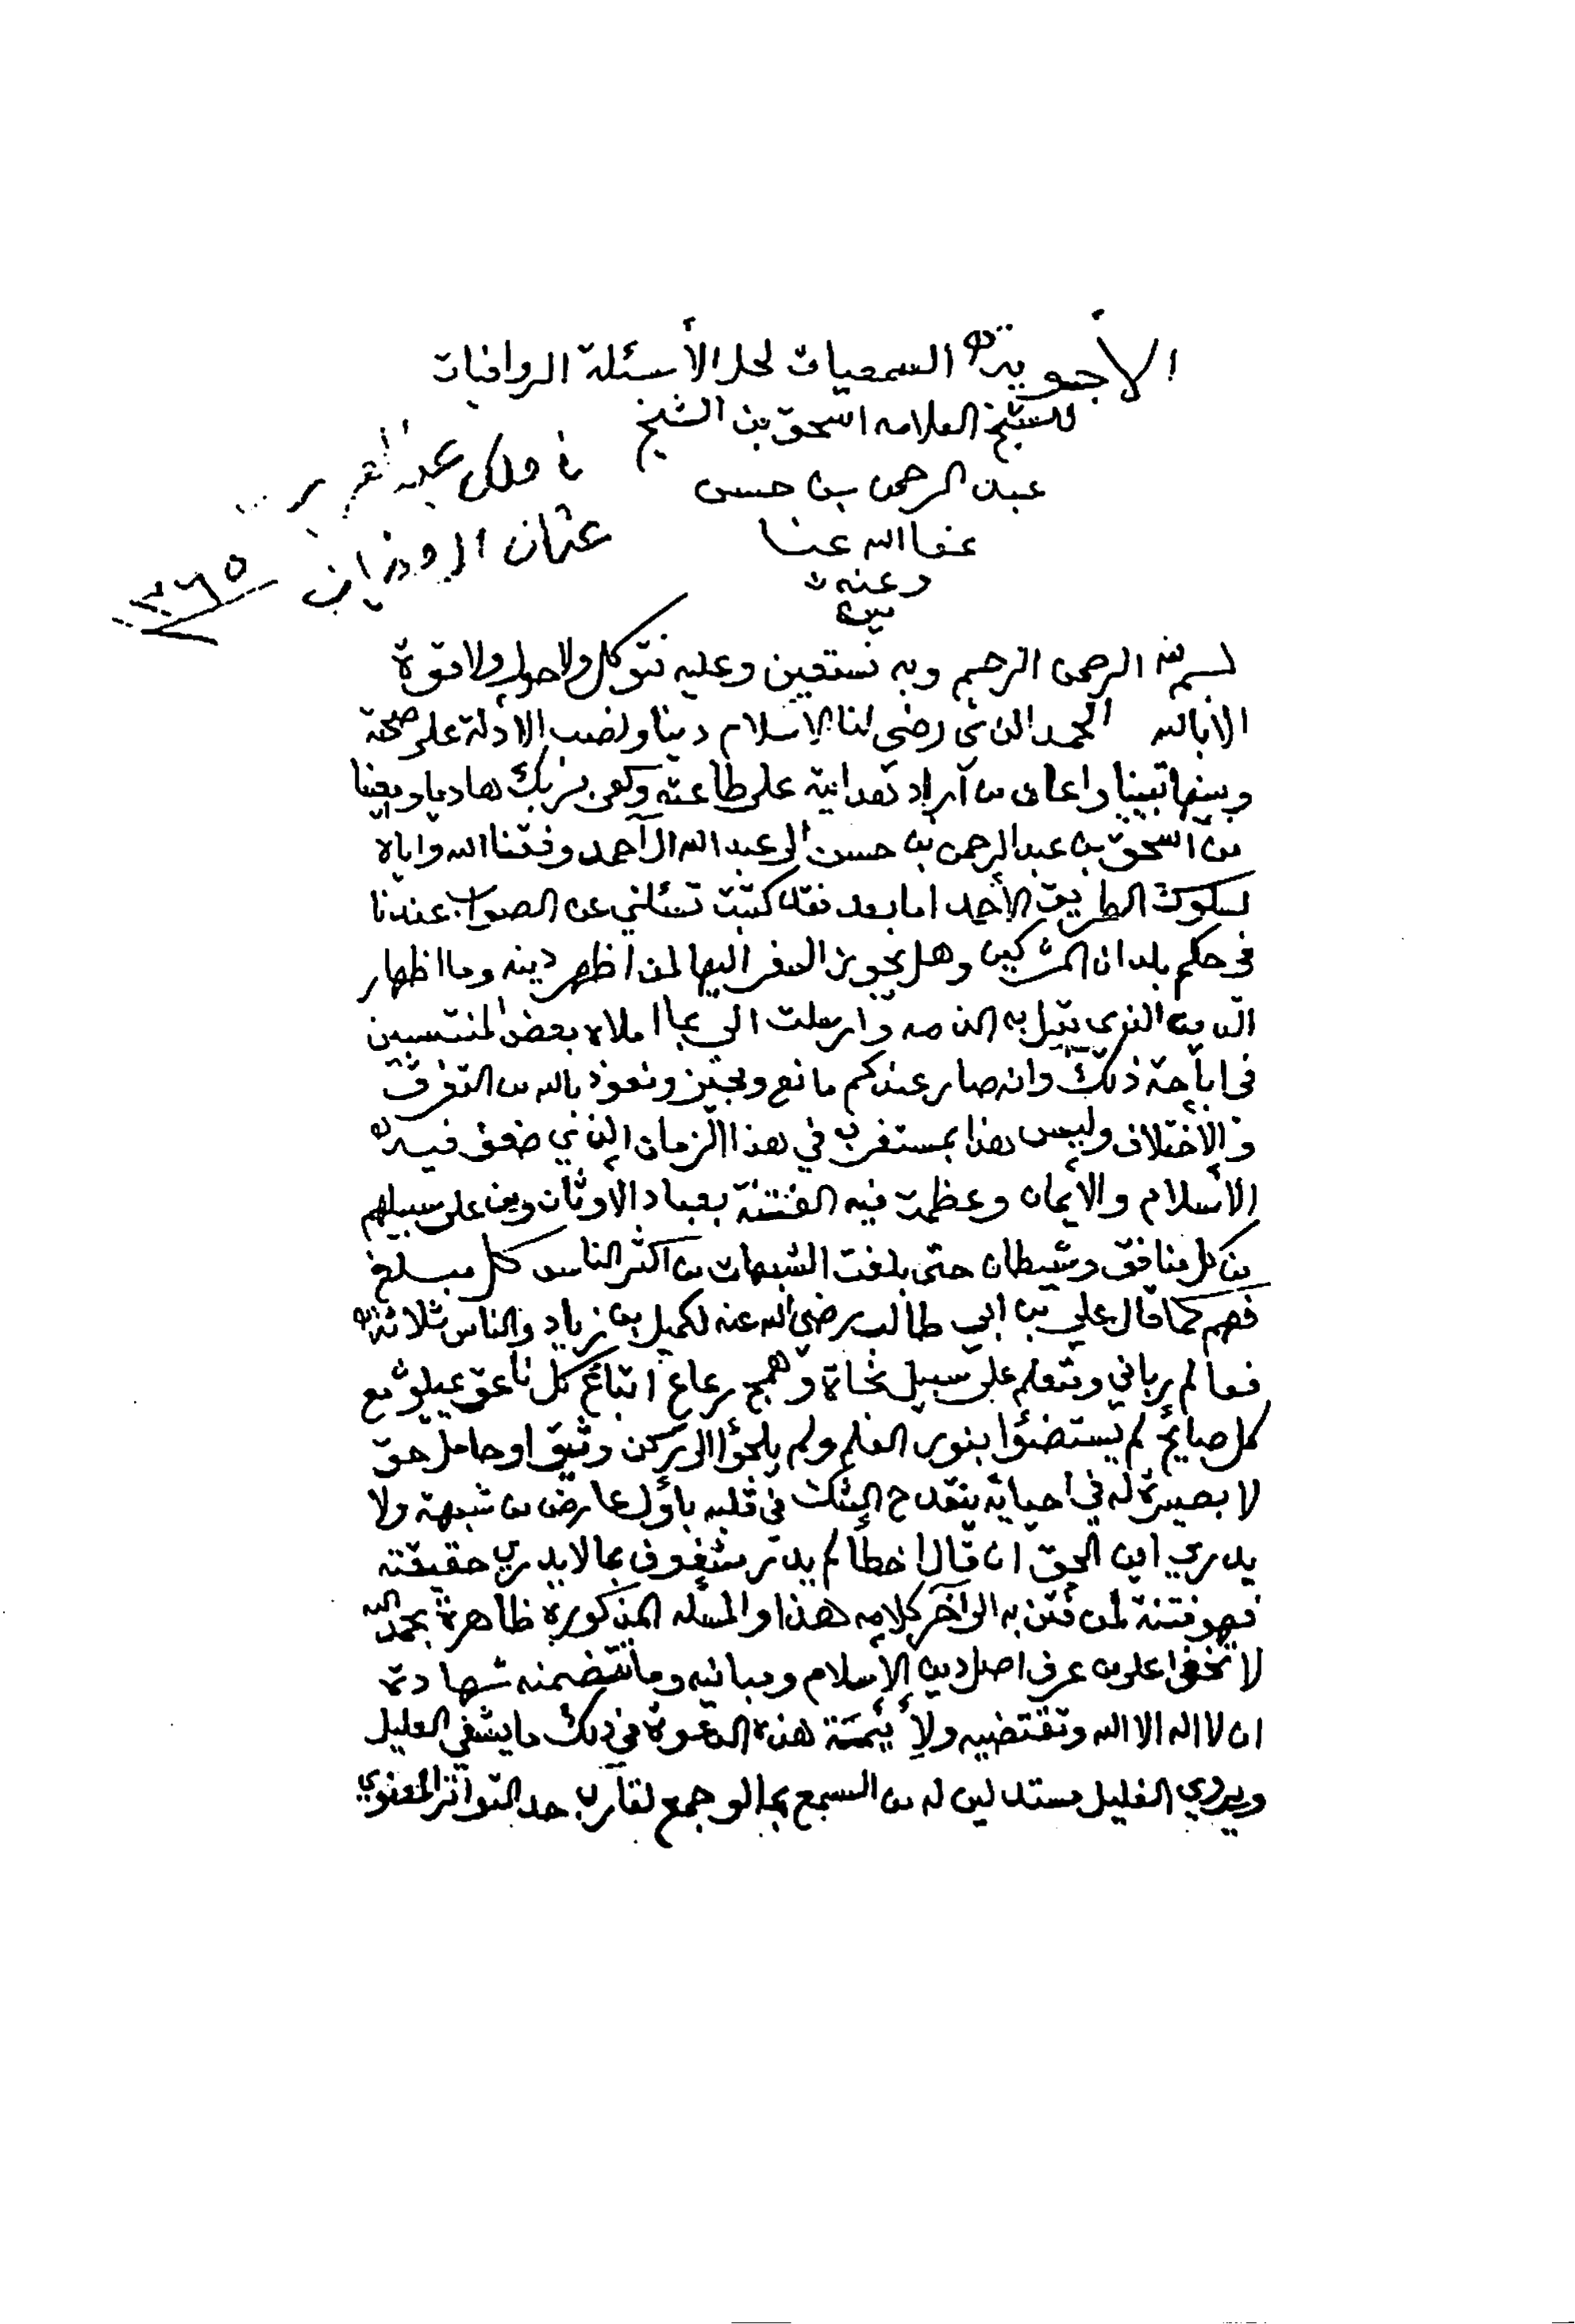 الأجوبة السمعيات لحل الأسئلة الروافيات
للشيخ العلامه اسحق بن الشيخ
عبد الرحمن بن حسن
عفا الله عنا
وعنه
في ملك عبد العزيز
عثمان
بسم الله الرحمن الرحيم وبه نستعين وعليه نتوكل ولا حول ولا قوة
الا بالله الحمد الذي رضي لنا الإسلام دينا ونصب الادلة على صحته
وبينها تبيينا واعان من أراد هدايته على طاعته وكفى بربك هاديا ومعينا
من اسحق بن عبد الرحمن بن حسن الى عبد الله ال أحمد وفقنا الله واياه
لسلوك الطريق الأحمد اما بعد فقد كتبت تسئلني عن الصواب عندنا
في حكم بلدان المشركين وهل يجوز السفر اليها لمن اظهر دينه وما اظهار
الدين الذي تبرا به الذمه وارسلت الي بما املاه بعض المنتسبين
في اباحة ذلك وانه صار عندكم مانع ومجيز ونعوذ بالله من التفرق
والأختلاف وليس هذا بمستغرب في هذا الزمان الذي ضعف فيه
الأسلام والأيمان وعظمت فيه الفتنة بعباد الاوثان ومن على سبيلهم
من كل منافق وشيطان حتى بلغت الشبهات من اكثر الناس كل مبلغ
فهم كما قال علي بن ابي طالب رضي الله عنه لكميل بن زياد والناس ثلاثة
فعالم رباني ومتعلم على سبيل نجاة وهمج رعاع اتباع كل ناعق يميلون مع
كل صايح لم يستضؤا بنور العلم ولم يلجؤا الى ركن وثيق او حامل حق
لا بصيرة له في احيائه ينقدح الشك في قلبه باول عارض من شبهة ولا
يدري اين الحق ان قال اخطأ لم يدر مشغوف بما لا يدري حقيقته
فهو فتنة لمن فتن به الى آخر كلامه هذا والمسئله المذكورة ظاهرة بحمد الله
لا تخفى على من عرف اصل دين الإسلام ومبانيه وما تتضمنه شهادة
ان لا اله الا الله وتقتضيه ولأئمة هذه الدعوة في ذلك ما يشفي العليل
ويروي الغليل مستدلين له من السمع بما لو جمع لقارب حد التواتر المعنوي